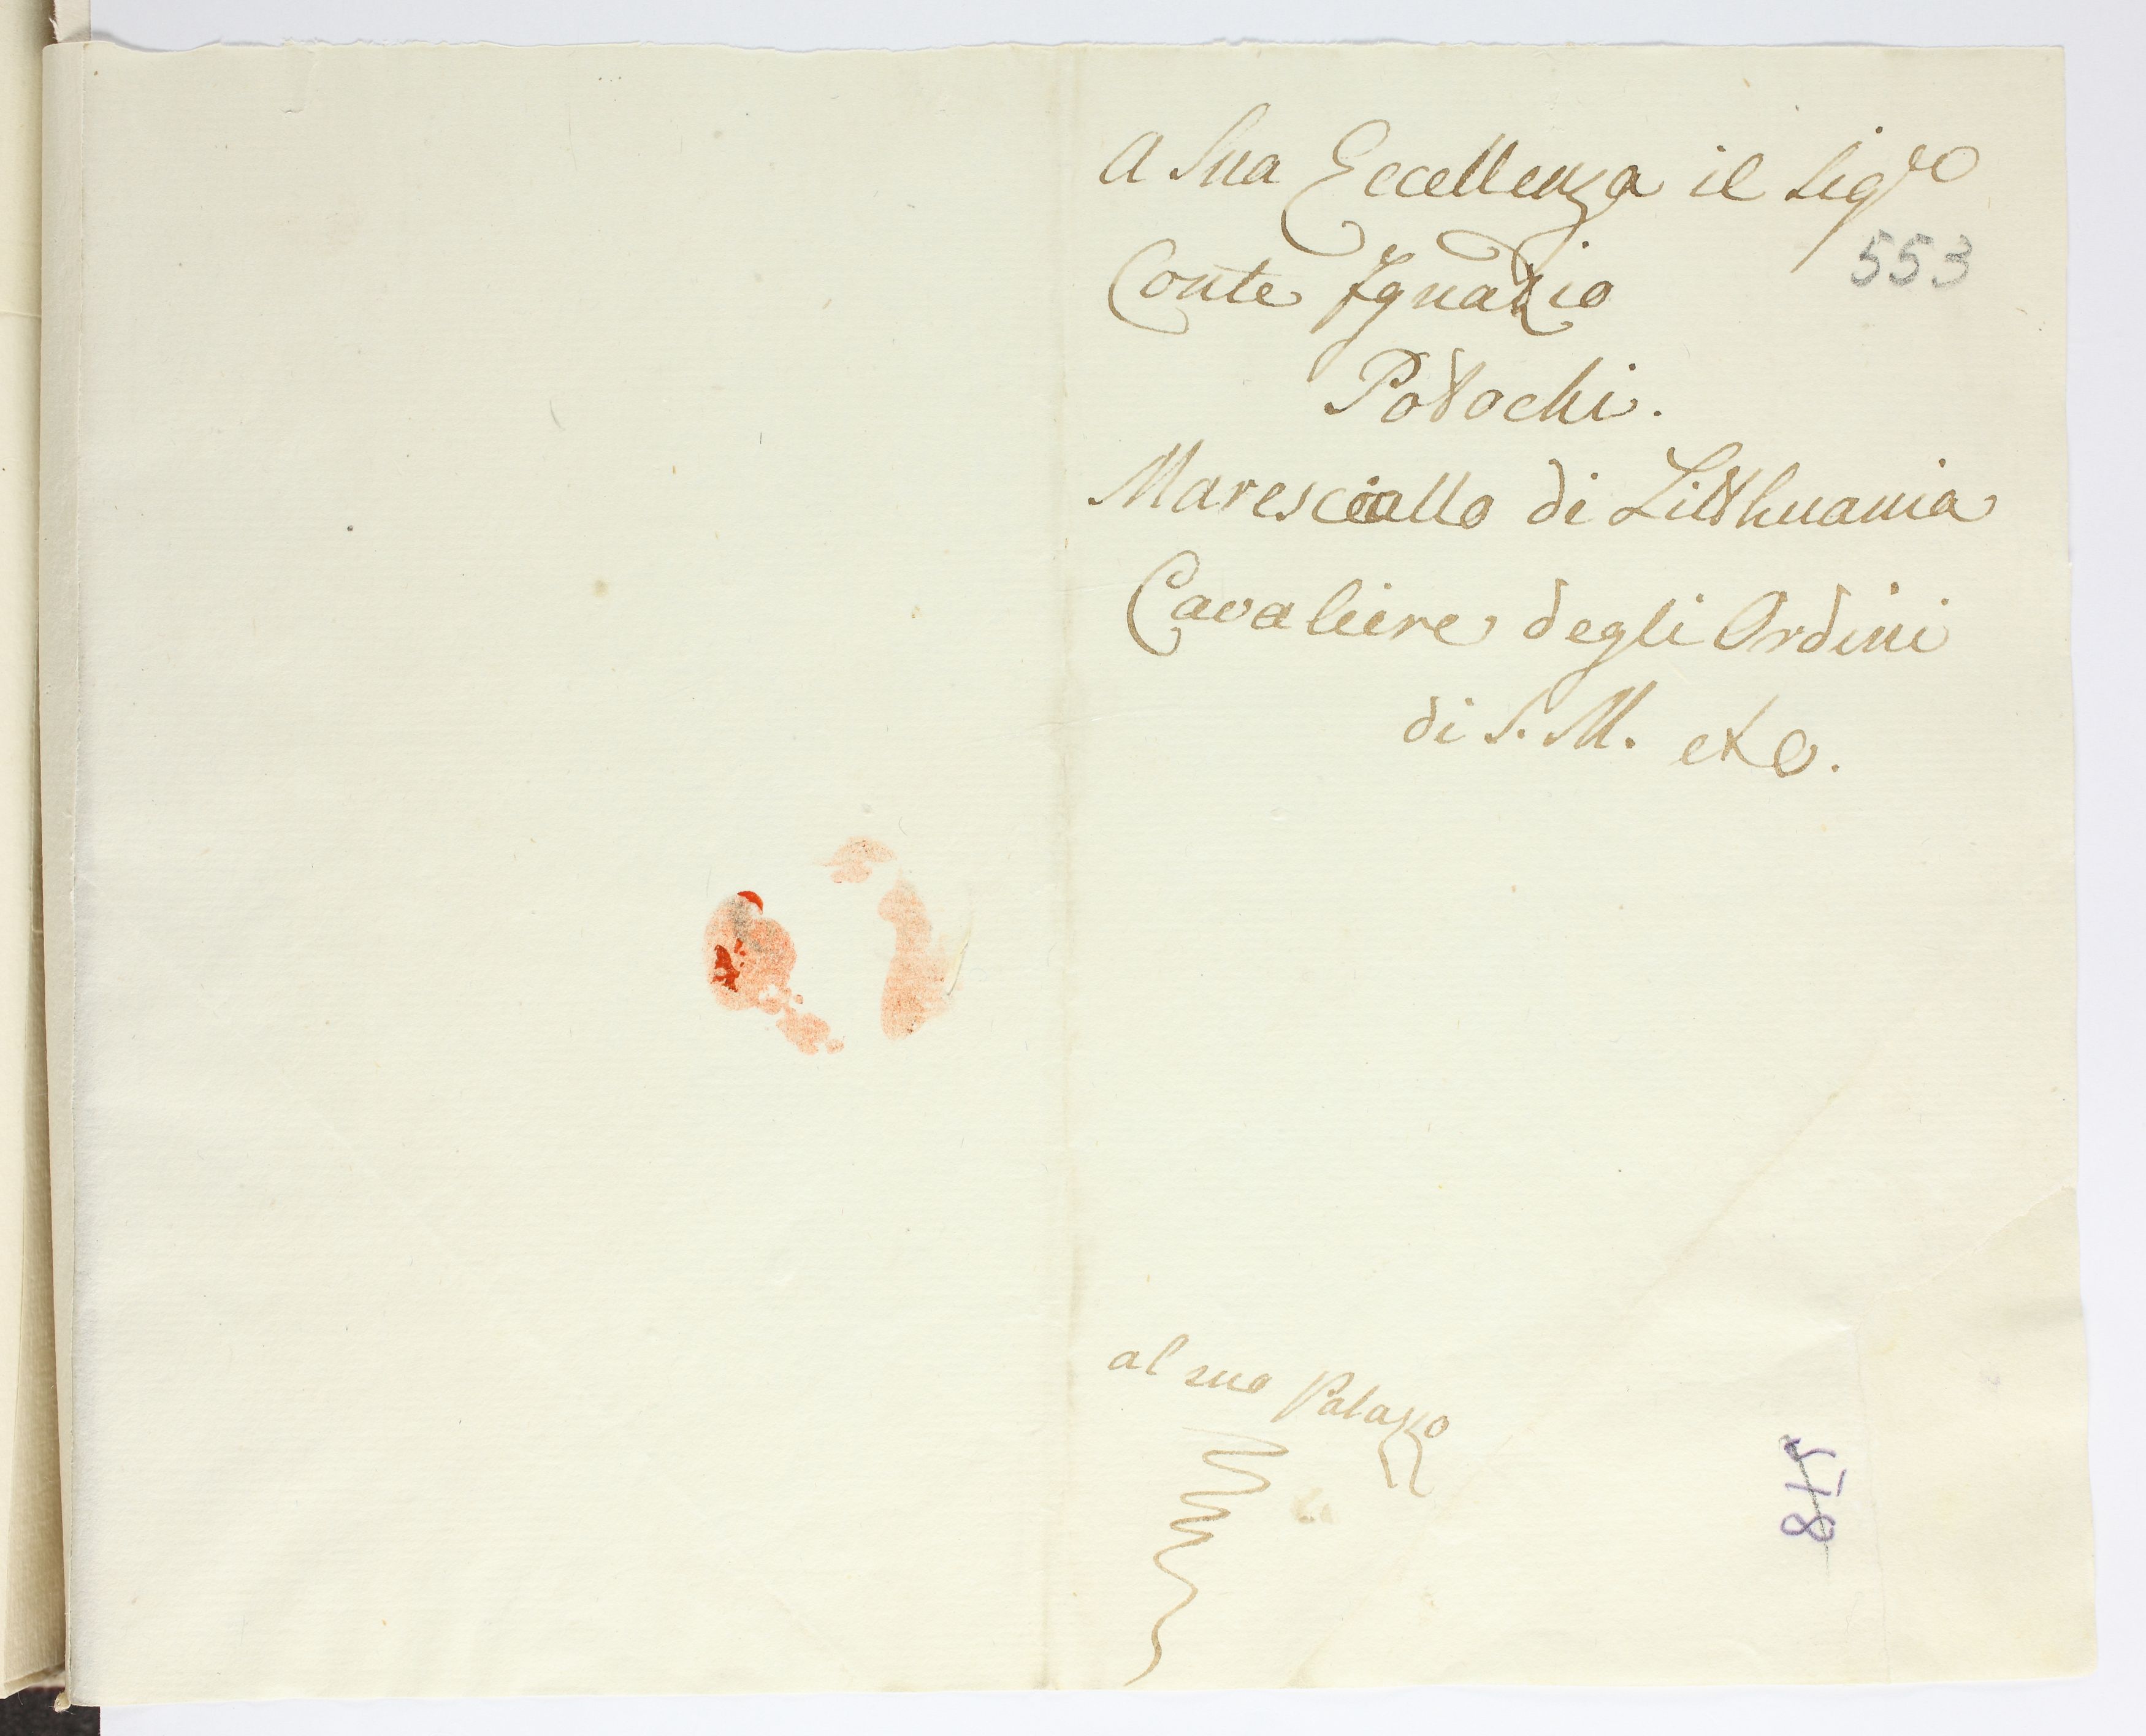 A Sua Eccellenza il Sigro
553
Conte Ignazio
Potochi.
Maresciallo di Litthuania
Cavaliere degli Ordini
di S. M. etc.
al suo Palazzo